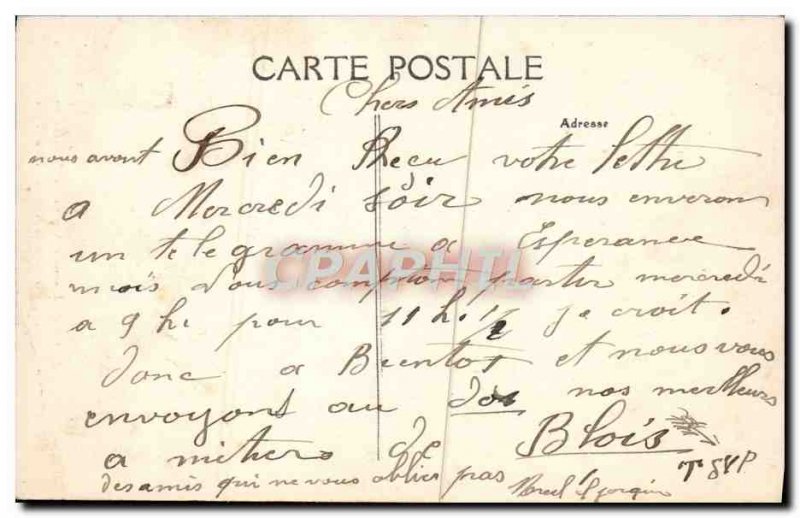 CARTE POSTALE
Chers Amis
Adresse
nous avont Bien Recu votre lettre
a Mercredi soir nous enveron
un telegramme a Esperance
mais nous compton partir mercredi
a 9 h. pour 11 h. 1/2 je croit.
donc a Bientot et nous vous
envoyont au dos nos meilleurs
a mitiers de Blois
desamis qui ne vous oblier pas
T S V P
CPAPHIL